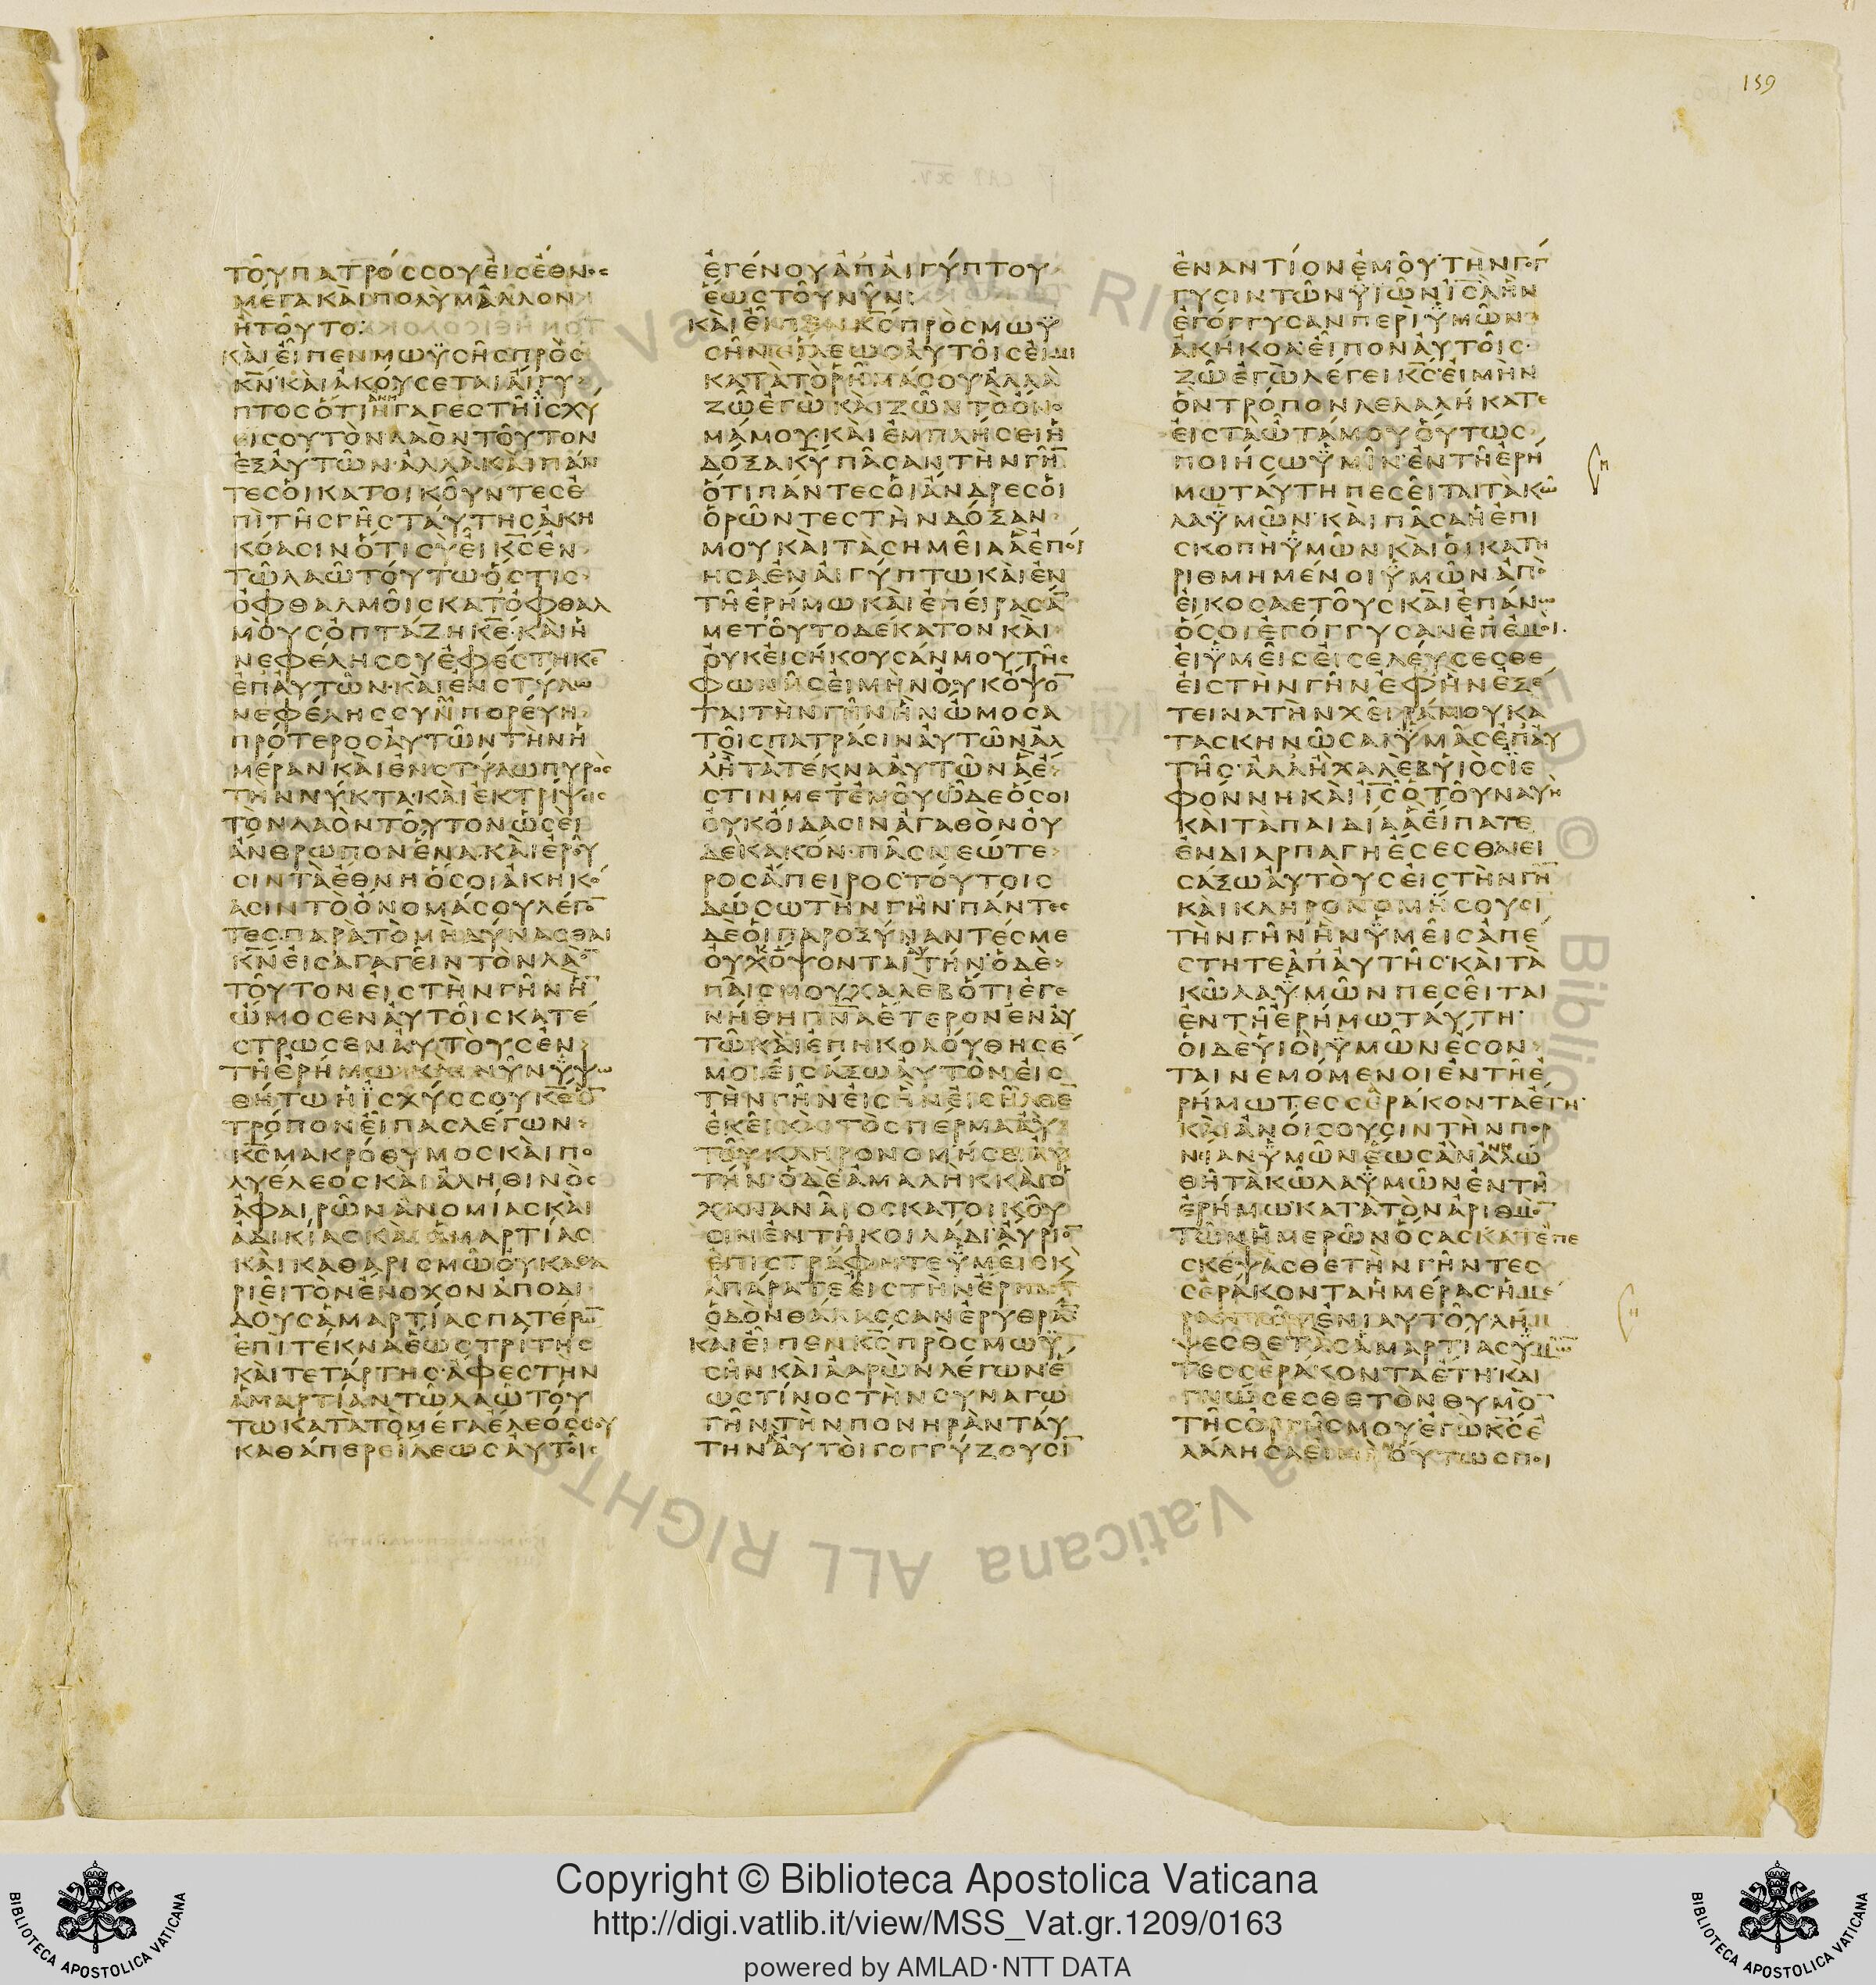 159
ΤΟΥΠΑΤΡΟΣΣΟΥΕΙΣΕΘΝΟΣ
ΜΕΓΑΚΑΙΠΟΛΥΜΑΛΛΟΝ
ΗΤΟΥΤΟ:
ΚΑΙΕΙΠΕΝΜΩΥΣΗΣΠΡΟΣ
ΚΝ·ΚΑΙΑΚΟΥΣΕΤΑΙΑΙΓΥ
ΠΤΟΣΟΤΙΗΓΑΓΕΣΤΗΙΣΧΥ
ΕΙΣΟΥΤΟΝΛΑΟΝΤΟΥΤΟΝ
ΕΞΑΥΤΩΝ·ΑΛΛΑΚΑΙΠΑΝ
ΤΕΣΟΙΚΑΤΟΙΚΟΥΝΤΕΣΕ
ΠΙΤΗΣΓΗΣΤΑΥΤΗΣΑΚΗ
ΚΟΑΣΙΝΟΤΙΣΥΕΙΚΣΕΝ
ΤΩΛΑΩΤΟΥΤΩΟΣΤΙΣ
ΟΦΘΑΛΜΟΙΣΚΑΤΟΦΘΑΛ
ΜΟΥΣΟΠΤΑΖΗΚΕ·ΚΑΙΗ
ΝΕΦΕΛΗΣΟΥΕΦΕΣΤΗΚΕ
ΕΠΑΥΤΩΝ·ΚΑΙΕΝΣΤΥΛΩ
ΝΕΦΕΛΗΣΣΥΠΟΡΕΥΗ
ΠΡΟΤΕΡΟΣΑΥΤΩΝΤΗΝΗ
ΜΕΡΑΝΚΑΙΕΝΣΤΥΛΩΠΥΡΟΣ
ΤΗΝΝΥΚΤΑ·ΚΑΙΕΚΤΡΙΨΕΙΣ
ΤΟΝΛΑΟΝΤΟΥΤΟΝΩΣΕΙ
ΑΝΘΡΩΠΟΝΕΝΑΚΑΙΕΡΟΥ
ΣΙΝΤΑΕΘΝΗΟΣΟΙΑΚΗΚΟ
ΑΣΙΝΤΟΟΝΟΜΑΣΟΥΛΕΓΟ
ΤΕΣ·ΠΑΡΑΤΟΜΗΔΥΝΑΣΘΑΙ
ΚΝΕΙΣΑΓΑΓΕΙΝΤΟΝΛΑΟ
ΤΟΥΤΟΝΕΙΣΤΗΝΓΗΝΗ
ΩΜΟΣΕΝΑΥΤΟΙΣΚΑΤΕ
ΣΤΡΩΣΕΝΑΥΤΟΥΣΕΝ
ΤΗΕΡΗΜΩ·ΚΑΙΝΥΝΥΨΩ
ΘΗΤΩΗΙΣΧΥΣΣΟΥΚΕΟ
ΤΡΟΠΟΝΕΙΠΑΣΛΕΓΩΝ
ΚΣΜΑΚΡΟΘΥΜΟΣΚΑΙΠΟ
ΛΥΕΛΕΟΣΚΑΙΑΛΗΘΙΝΟΣ
ΑΦΑΙΡΩΝΑΝΟΜΙΑΣΚΑΙ
ΑΔΙΚΙΑΣΚΑΙΑΜΑΡΤΙΑΣ
ΚΑΙΚΑΘΑΡΙΣΜΩΟΥΚΑΘΑ
ΡΙΕΙΤΟΝΕΝΟΧΟΝΑΠΟΔΙ
ΔΟΥΣΑΜΑΡΤΙΑΣΠΑΤΕΡΩ
ΕΠΙΤΕΚΝΑΕΩΣΤΡΙΤΗΣ
ΚΑΙΤΕΤΑΡΤΗΣ·ΑΦΕΣΤΗΝ
ΑΜΑΡΤΙΑΝΤΩΛΑΩΤΟΥ
ΤΩΚΑΤΑΤΟΜΕΓΑΕΛΕΟΣΣΟΥ
ΚΑΘΑΠΕΡΕΙΛΕΩΣΑΥΤΟΙΣ
ΕΓΕΝΟΥΑΠΑΙΓΥΠΤΟΥ
ΕΩΣΤΟΥΝΥΝ:
ΚΑΙΕΙΠΕΝΚΣΠΡΟΣΜΩΥ
ΣΗΝΕΙΛΕΩΣΑΥΤΟΙΣΕΙΜΙ
ΚΑΤΑΤΟΡΗΜΑΣΟΥ·ΑΛΛΑ
ΖΩΕΓΩΚΑΙΖΩΝΤΟΟΝΟ
ΜΑΜΟΥ·ΚΑΙΕΜΠΛΗΣΕΙΗ
ΔΟΞΑΚΥΠΑΣΑΝΤΗΝΓΗ
ΟΤΙΠΑΝΤΕΣΟΙΑΝΔΡΕΣΟΙ
ΟΡΩΝΤΕΣΤΗΝΔΟΞΑΝ
ΜΟΥΚΑΙΤΑΣΗΜΕΙΑΑΕΠΟΙ
ΗΣΑΕΝΑΙΓΥΠΤΩΚΑΙΕΝ
ΤΗΕΡΗΜΩΚΑΙΕΠΕΙΡΑΣΑ
ΜΕΤΟΥΤΟΔΕΚΑΤΟΝΚΑΙ
ΟΥΚΕΙΣΗΚΟΥΣΑΝΜΟΥΤΗΣ
ΦΩΝΗΣΕΙΜΗΝΟΥΚΟΨΟ
ΤΑΙΤΗΝΓΗΝΗΝΩΜΟΣΑ
ΤΟΙΣΠΑΤΡΑΣΙΝΑΥΤΩΝΑΛ
ΛΗΤΑΤΕΚΝΑΑΥΤΩΝΑΕ
ΣΤΙΝΜΕΤΕΜΟΥΩΔΕΟΣΟΙ
ΟΥΚΟΙΔΑΣΙΝΑΓΑΘΟΝΟΥ
ΔΕΚΑΚΟΝ·ΠΑΣΝΕΩΤΕ
ΡΟΣΑΠΕΙΡΟΣΤΟΥΤΟΙΣ
ΔΩΣΩΤΗΝΓΗΝ·ΠΑΝΤΕΣ
ΔΕΟΙΠΑΡΟΞΥΝΑΝΤΕΣΜΕ
ΟΥΚΟΨΟΝΤΑΙΑΥΤΗΝ·ΟΔΕ
ΠΑΙΣΜΟΥΧΑΛΕΒΟΤΙΕΓΕ
ΝΗΘΗΠΝΑΕΤΕΡΟΝΕΝΑΥ
ΤΩΚΑΙΕΠΗΚΟΛΟΥΘΗΣΕ
ΜΟΙΕΙΣΑΞΩΑΥΤΟΝΕΙΣ
ΤΗΝΓΗΝΕΙΣΗΝΕΙΣΗΛΘΕ
ΕΚΕΙΚΑΙΤΟΣΠΕΡΜΑΑΥ
ΤΟΥΚΛΗΡΟΝΟΜΗΣΕΙΑΥ
ΤΗΝ·ΟΔΕΑΜΑΛΗΚΚΑΙΟ
ΧΑΝΑΝΑΙΟΣΚΑΤΟΙΚΟΥ
ΣΙΝΕΝΤΗΚΟΙΛΑΔΙΑΥΡΙΟ
ΕΠΙΣΤΡΑΦΗΤΕΥΜΕΙΣΚ
ΑΠΑΡΑΤΕΕΙΣΤΗΝΕΡΗΜΟ
ΟΔΟΝΘΑΛΑΣΣΑΝΕΡΥΘΡΑ
ΚΑΙΕΙΠΕΝΚΣΠΡΟΣΜΩΥ
ΣΗΝΚΑΙΑΑΡΩΝΛΕΓΩΝ·Ε
ΩΣΤΙΝΟΣΤΗΝΣΥΝΑΓΩ
ΓΗΝΤΗΝΠΟΝΗΡΑΝΤΑΥ
ΤΗΝΑΥΤΟΙΓΟΓΓΥΖΟΥΣΙ
ΕΝΑΝΤΙΟΝΕΜΟΥΤΗΝΓΟΓ
ΓΥΣΙΝΤΩΝΥΙΩΝΙΣΛΗΝ
ΕΓΟΓΓΥΣΑΝΠΕΡΙΥΜΩΝ
ΑΚΗΚΟΑ·ΕΙΠΟΝΑΥΤΟΙΣ·
ΖΩΕΓΩΛΕΓΕΙΚΣ·ΕΙΜΗΝ
ΟΝΤΡΟΠΟΝΛΕΛΑΛΗΚΑΤΕ
ΕΙΣΤΑΩΤΑΜΟΥΟΥΤΩΣ
ΠΟΙΗΣΩΥΜΙΝ·ΕΝΤΗΕΡΗ
ΜΩΤΑΥΤΗΠΕΣΕΙΤΑΙΤΑΚΩ
ΛΑΥΜΩΝ·ΚΑΙΠΑΣΑΗΕΠΙ
ΣΚΟΠΗΥΜΩΝΚΑΙΟΙΚΑΤΗ
ΡΙΘΜΗΜΕΝΟΙΥΜΩΝΑΠΟ
ΕΙΚΟΣΑΕΤΟΥΣΚΑΙΕΠΑΝΩ
ΟΣΟΙΕΓΟΓΓΥΣΑΝΕΠΕΜΟΙ·
ΕΙΥΜΕΙΣΕΙΣΕΛΕΥΣΕΣΘΕ
ΕΙΣΤΗΝΓΗΝΕΦΗΝΕΞΕ
ΤΕΙΝΑΤΗΝΧΕΙΡΑΜΟΥΚΑ
ΤΑΣΚΗΝΩΣΑΙΥΜΑΣΕΠΑΥ
ΤΗΣ·ΑΛΛΗΧΑΛΕΒΥΙΟΣΙΕ
ΦΟΝΝΗΚΑΙΙΣΟΤΟΥΝΑΥΗ
ΚΑΙΤΑΠΑΙΔΙΑΑΕΙΠΑΤΕ
ΕΝΔΙΑΡΠΑΓΗΕΣΕΣΘΑΙΕΙ
ΣΑΞΩΑΥΤΟΥΣΕΙΣΤΗΝΓΗ
ΚΑΙΚΛΗΡΟΝΟΜΗΣΟΥΣΙ
ΤΗΝΓΗΝΗΝΥΜΕΙΣΑΠΕ
ΣΤΗΤΕΑΠΑΥΤΗΣ·ΚΑΙΤΑ
ΚΩΛΑΥΜΩΝΠΕΣΕΙΤΑΙ
ΕΝΤΗΕΡΗΜΩΤΑΥΤΗ·
ΟΙΔΕΥΙΟΙΥΜΩΝΕΣΟΝ
ΤΑΙΝΕΜΟΜΕΝΟΙΕΝΤΗΕ
ΡΗΜΩΤΕΣΣΕΡΑΚΟΝΤΑΕΤΗ·
ΚΑΙΑΝΟΙΣΟΥΣΙΝΤΗΝΠΟΡ
ΝΙΑΝΥΜΩΝΕΩΣΑΝΑΛΩ
ΘΗΤΑΚΩΛΑΥΜΩΝΕΝΤΗ
ΕΡΗΜΩ·ΚΑΤΑΤΟΝΑΡΙΘΜΟ
ΤΩΝΗΜΕΡΩΝΟΣΑΣΚΑΤΕΠΕ
ΣΚΕΨΑΣΘΕΤΗΝΓΗΝΤΕΣ
ΣΕΡΑΚΟΝΤΑΗΜΕΡΑΣ·ΗΜΕ
ΡΑΝΤΟΥΕΝΙΑΥΤΟΥΛΗΜ
ΨΕΣΘΕΤΑΣΑΜΑΡΤΙΑΣΥΜΩ
ΤΕΣΣΕΡΑΚΟΝΤΑΕΤΗ·ΚΑΙ
ΓΝΩΣΕΣΘΕΤΟΝΘΥΜΟ
ΤΗΣΟΡΓΗΣΜΟΥ·ΕΓΩΚΣΕ
ΛΑΛΗΣΑΕΙΜΗΟΥΤΩΣΠΟΙ
Copyright © Biblioteca Apostolica Vaticana
http://digi.vatlib.it/view/MSS_Vat.gr.1209/0163
powered by AMLAD·NTT DATA
BIBLIOTECA APOSTOLICA VATICANA
BIBLIOTECA APOSTOLICA VATICANA